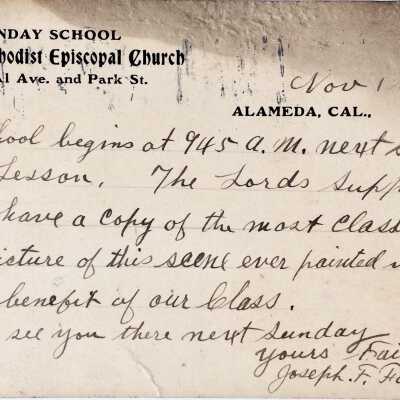 NDAY SCHOOL
hodist Episcopal Church
al Ave. and Park St.
Nov 1
ALAMEDA, CAL.,
hool begins at 945 A.M. next S
Lesson. The Lords Supp
have a copy of the most Class
icture of this scene ever painted
benefit of our Class.
see you there next Sunday
yours Fai
Joseph. F. Fo